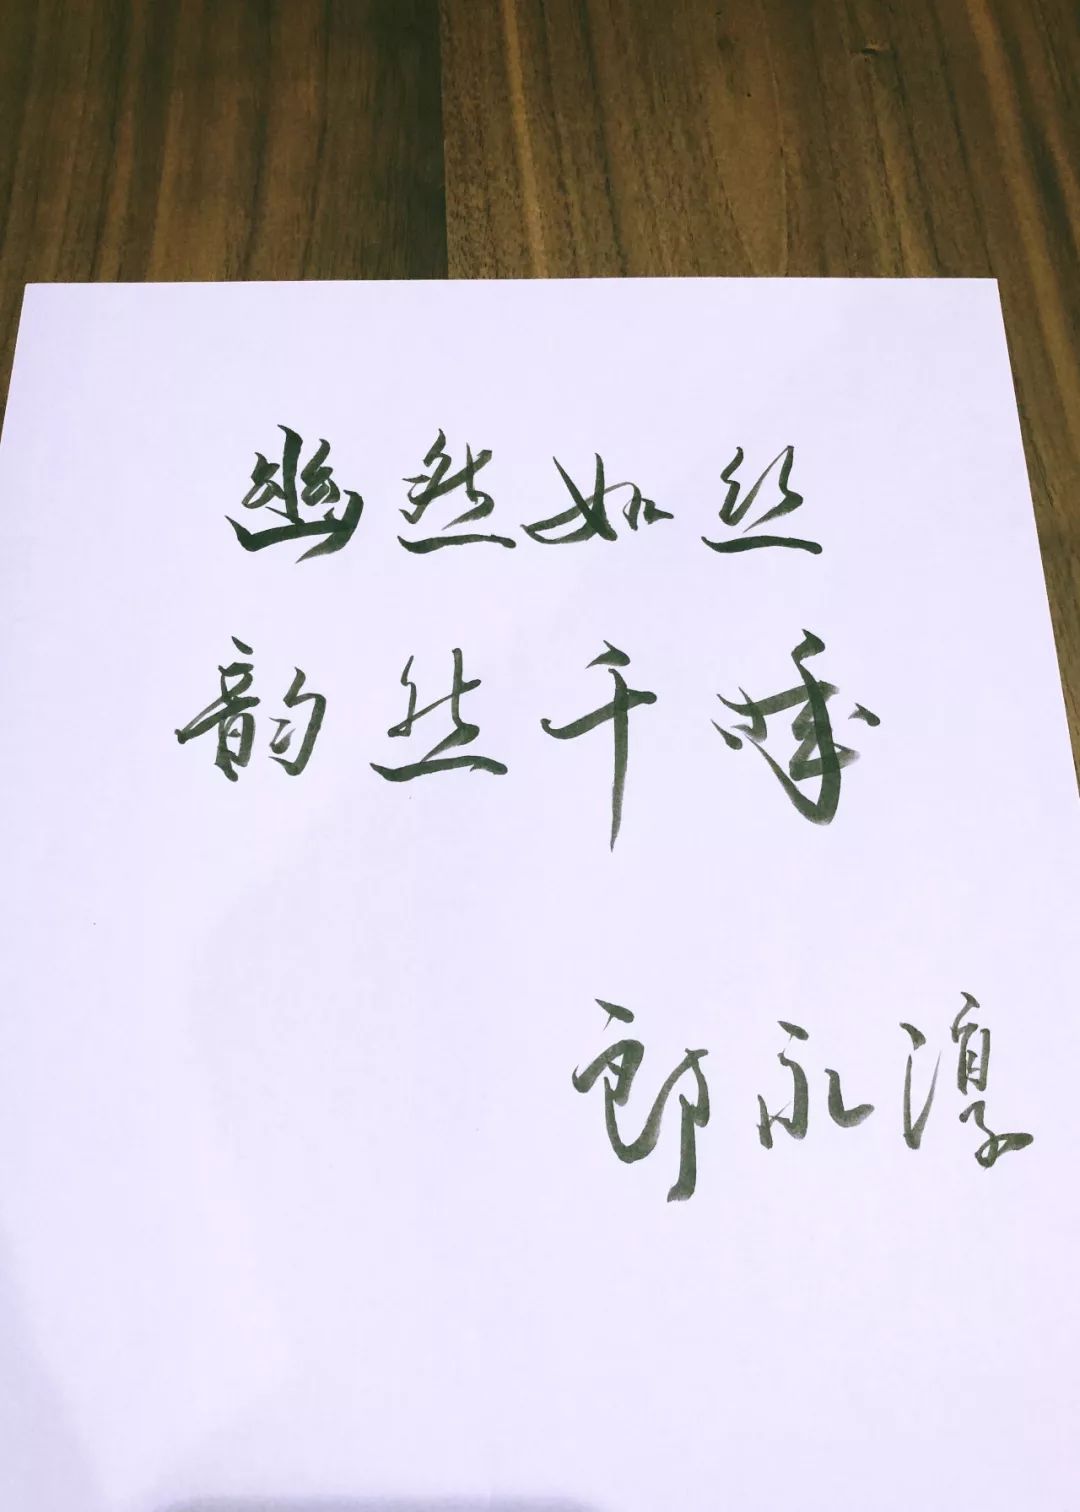 幽然如丝
韵然千
郎永淳